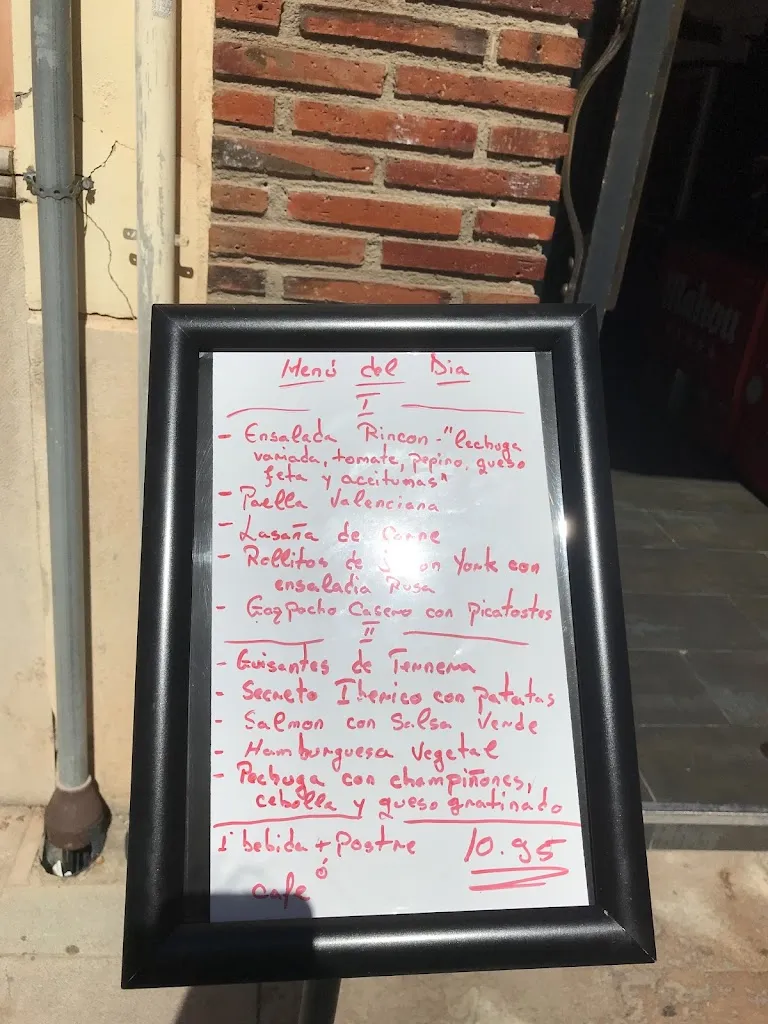 Menú del Dia
I
- Ensalada Rincon - "lechuga
variada, tomate, pepino, queso
feta y accitumas"
- Paella Valenciana
- Lasaña de Carne
- Rollitos de York con
ensaladia Rusa
- Gazpacho Casero con picatostes
II
- Guisantes de Ternera
- Secreto Iberico con patatas
- Salmon con Salsa Verde
- Hamburguesa Vegetal
- Pechuga con champiñones,
cebolla y queso gratinado
1 bebida + Postre 10.95
ó
cafe
Mahou